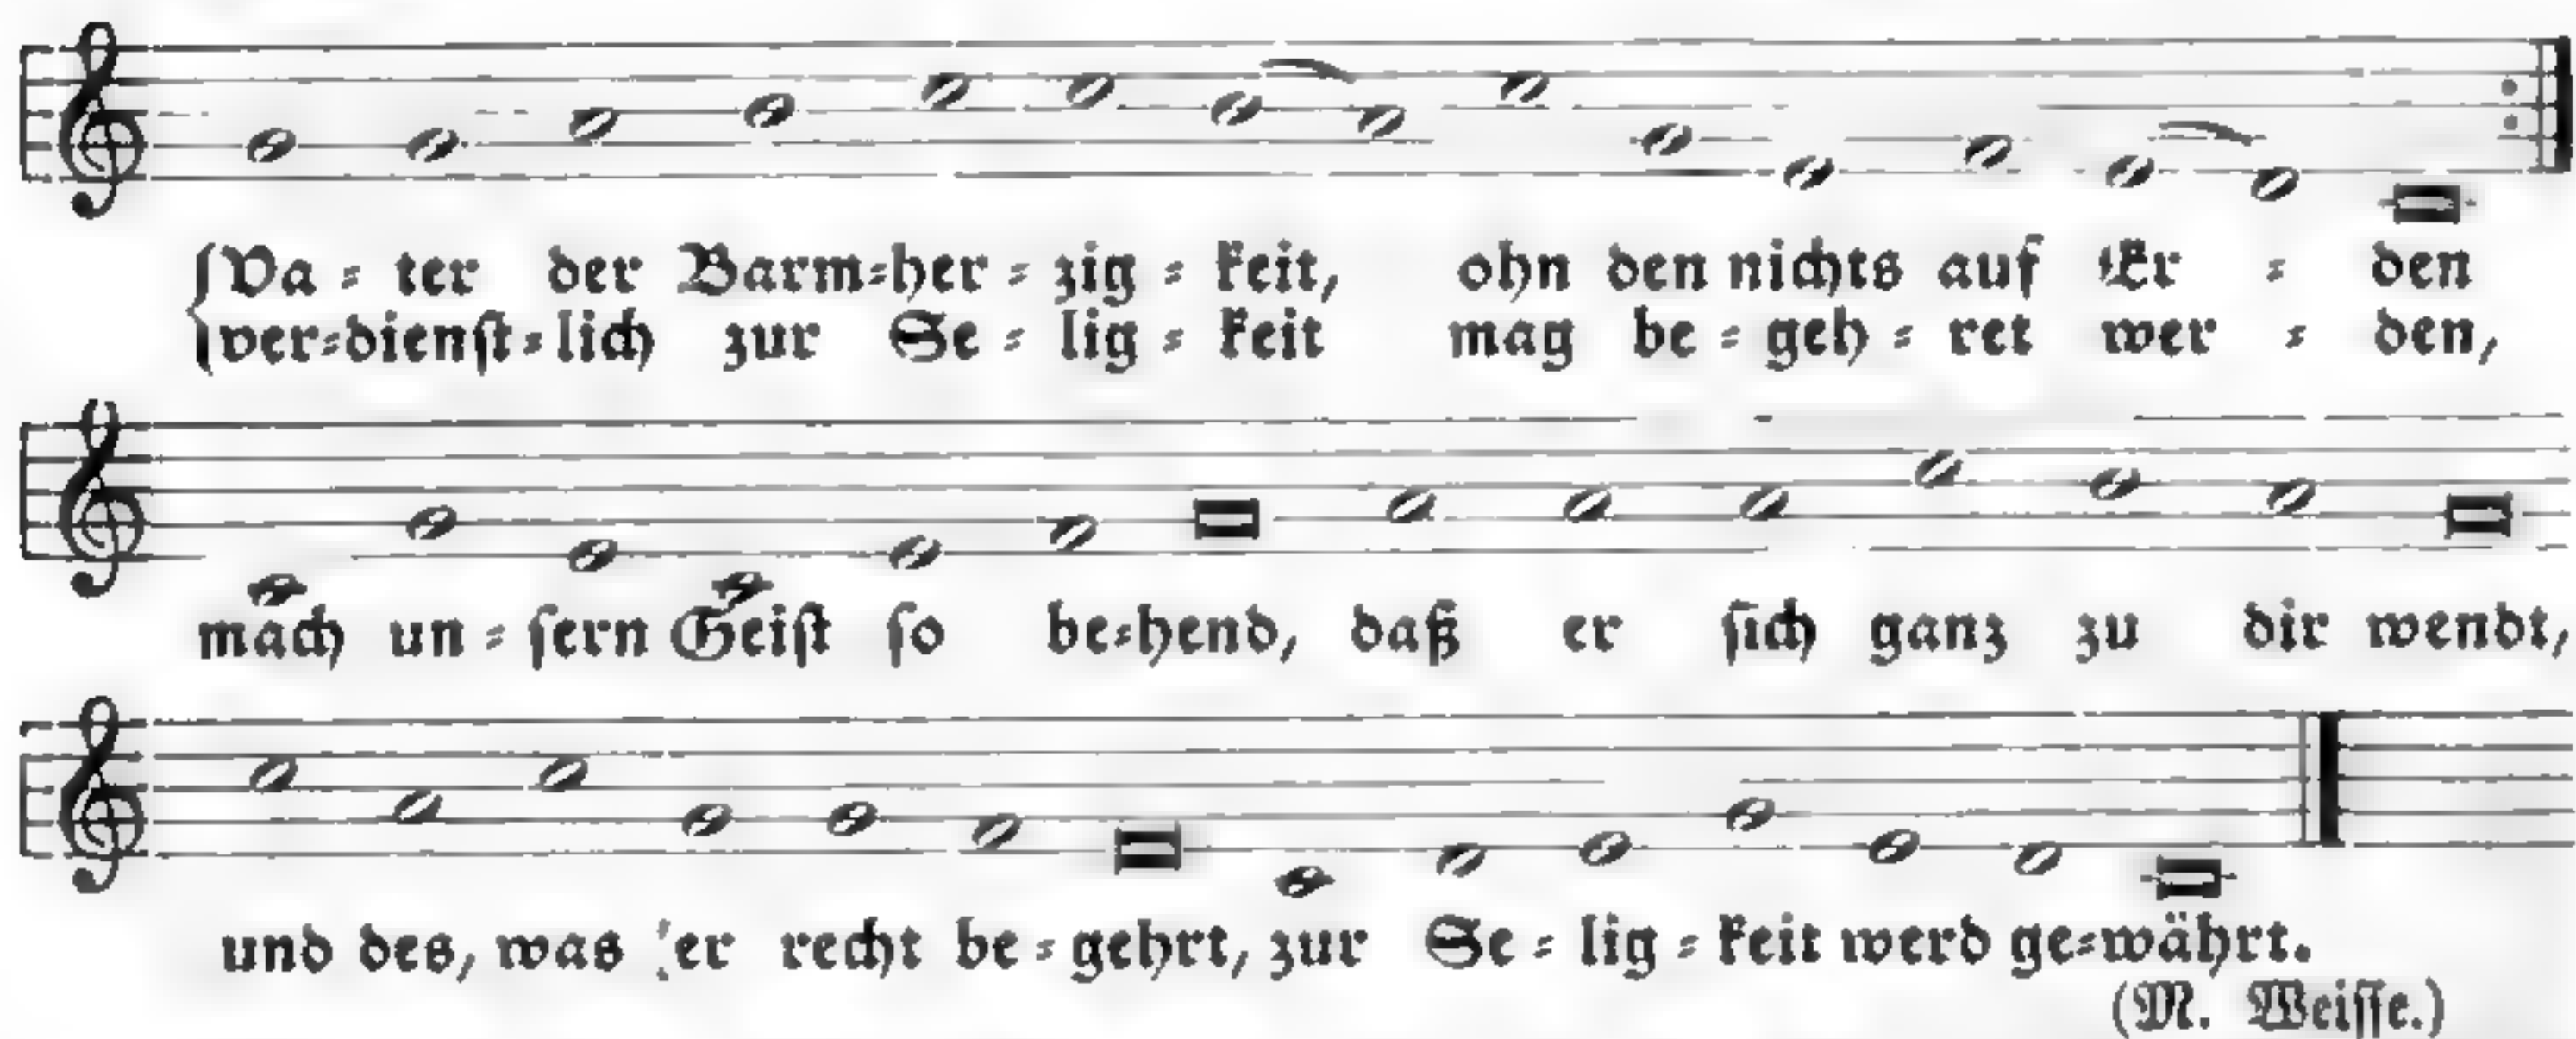 Va = ter der Barm=her = zig = keit, ohn den nichts auf Er = den
ver=dienſt=lich zur Se = lig = keit mag be = geh = ret wer = den,
mach un = ſern Geiſt ſo be=hend, daß er ſich ganz zu dir wendt,
und des, was er recht be = gehrt, zur Se = lig = keit werd ge=währt.
(M. Weiſſe.)